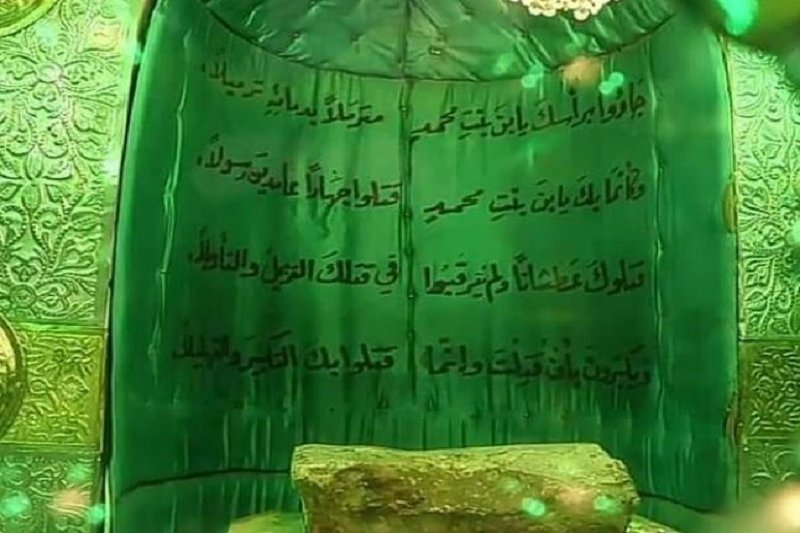 جَاؤُوا بِرَأْسِكَ يَا بْنَ بِنْتِ مُحَمَّدٍ مُتَزَمِّلًا بِدِمَائِهِ تَزْمِيلًا
وَكَأَنَّمَا بِكَ يَا بْنَ بِنْتِ مُحَمَّدٍ قَتَلُوا جِهَارًا عَامِدِينَ رَسُولًا
قَتَلُوكَ عَطْشَانًا وَلَمْ يَرْقُبُوا فِي قَتْلِكَ التَّنْزِيلَ وَالتَّأْوِيلَا
وَيُكَبِّرُونَ بِأَنْ قُتِلْتَ وَإِنَّمَا قَتَلُوا بِكَ التَّكْبِيرَ وَالتَّهْلِيلَا